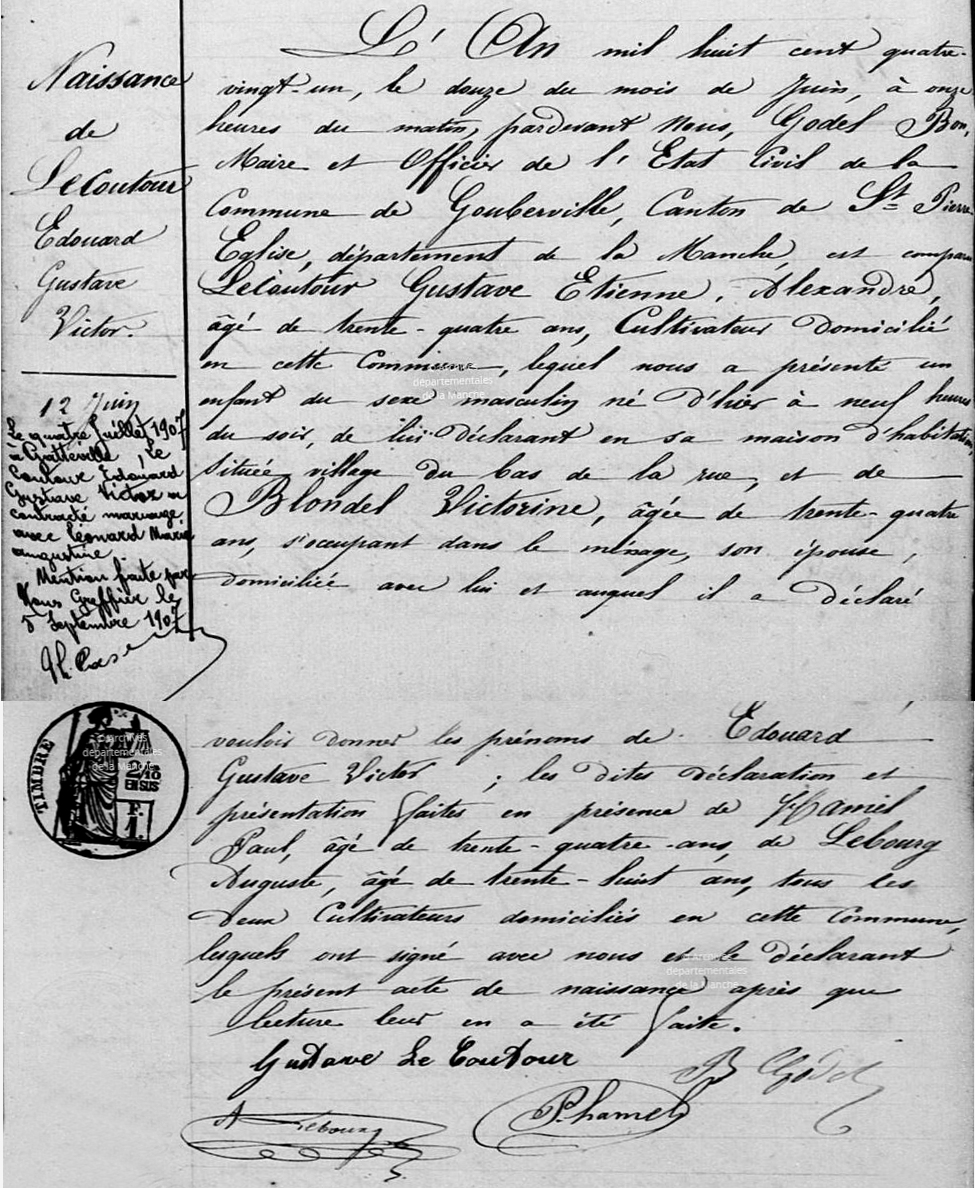 Naissance
de
LeCoutour
Edouard
Gustave
Victor.
12 Juin
Le quatre Juillet 1907
a Gatteville, Le
Coutour Edouard
Gustave Victor a
contracté mariage
avec Léonard Marie
augustine.
Mention faite par
Nous Greffier le
5 Septembre 1907
L'An mil huit cent quatre-
vingt-un, le douze du mois de Juin, à onze
heures du matin, pardevant Nous, Godel Bon,
Maire et Officier de l'Etat Civil de la
Commune de Gouberville, Canton de St Pierre
Eglise, département de la Manche, est comparu
LeCoutour Gustave Etienne, Alexandre,
âgé de trente-quatre ans, Cultivateur Domicilié
en cette Commune, lequel nous a présenté un
enfant du sexe masculin né D'hier à neuf heures
du soir, de lui Déclarant en sa maison d'habitation,
Située village du bas de la rue, et de
Blondel Victorine, âgée de trente-quatre
ans, s'occupant dans le ménage, son épouse,
domiciliée avec lui et auquel il a Déclaré
TIMBRE
2/10
EN SUS
F.
1
vouloir Donner les prénoms de Edouard
Gustave Victor ; les Dites Déclaration et
présentation faites en présence de Hamel
Paul, âgé de trente-quatre-ans, de Lebourg
Auguste, âgé de trente-huit ans, tous les
Deux Cultivateurs domiciliés en cette Commune,
lesquels ont signé avec nous et le Déclarant
le présent acte de naissance après que
lecture leur en a été faite.
Gustave Le Coutour
B Godel
A Lebourg
P. hamel
© Archives
départementales
de la Manche
© Archives
départementales
de la Manche
© Archives
départementales
de la Manche